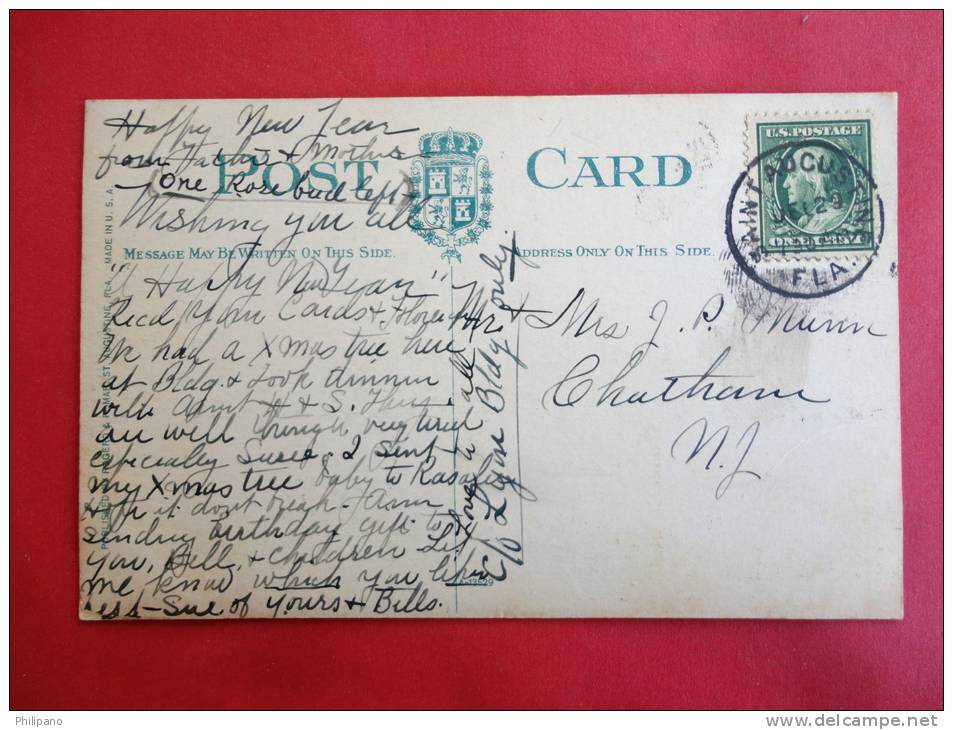 Happy New Year
from Father & Mother
POST CARD
One Rose bud left
Wishing you all
MESSAGE MAY BE WRITTEN ON THIS SIDE.
ADDRESS ONLY ON THIS SIDE.
"A Happy New Year"
Recd your Cards &
We had a Xmas tree here
at Bldg. & Took dinner
with Aunt H & S. They
are well though very tired
especially Susie. I sent
my Xmas tree baby to
Hope it dont break. Am
sending birthday gift to
you, Bell, & children Let
me know which you like
best - Sue of yours & Bills.
Love to all
c/o Lyon Bldg. only.
Mrs J. P. Munn
Chatham
N.J
U.S. POSTAGE
ONE CENT
SAINT AUGUSTINE
FLA.
MADE IN U. S. A.
Philipano
www.delcampe.net